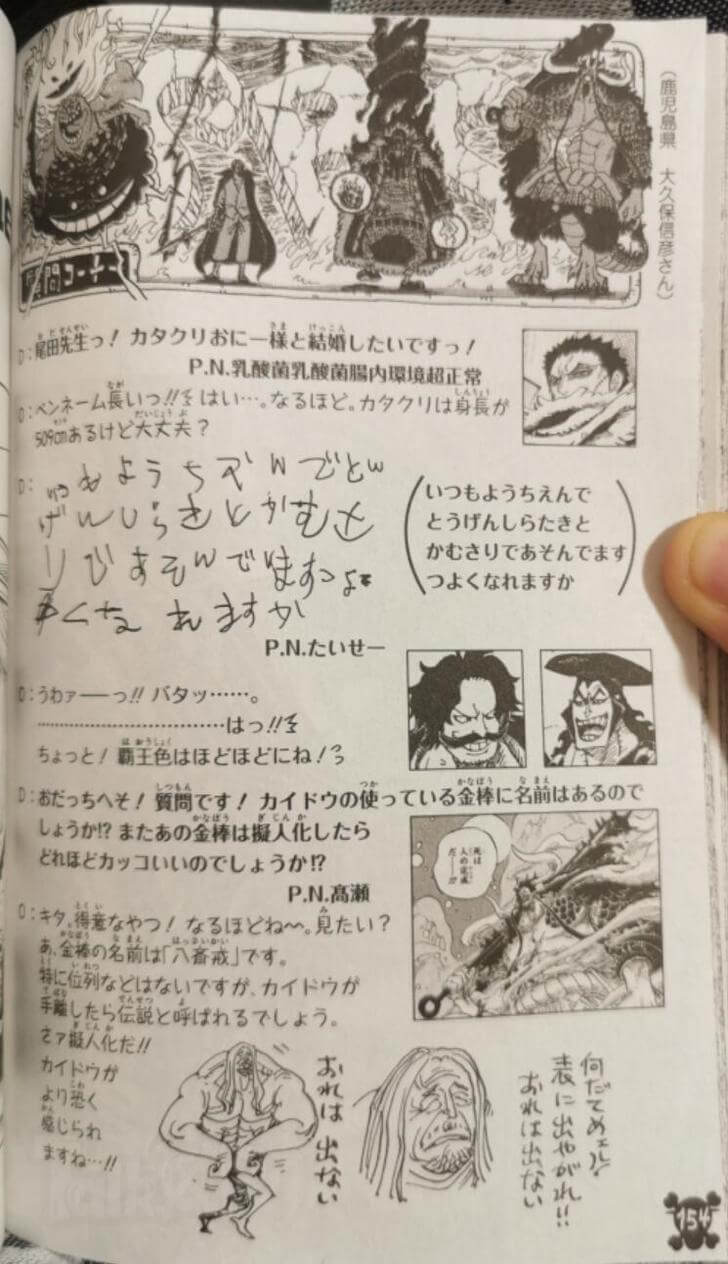 (鹿児島県 大久保信彦さん)
質問コーナー
D:尾田先生っ! カタクリおにー様と結婚したいですっ!
P.N.乳酸菌乳酸菌腸内環境超正常
O:ペンネーム長いっ!!ミ はい…。なるほど。カタクリは身長が
509cmあるけど大丈夫?
D:いつもようちえんでとう
げんしらたきとかむさ
りであそんでますつよ
くなれますか
(いつもようちえんで
とうげんしらたきと
かむさりであそんでます
つよくなれますか)
P.N.たいせー
O:うわァーーっ!! バタッ……。
……………………………はっ!!ミ
ちょっと! 覇王色はほどほどにね!
D:おだっちへそ! 質問です! カイドウの使っている金棒に名前はあるので
しょうか!? またあの金棒は擬人化したら
どれほどカッコいいのでしょうか!?
P.N.髙瀬
死は
人の完成
だ――!!!
O:キタ、得意なやつ! なるほどね〜。見たい?
あ、金棒の名前は「八斎戒」です。
特に位列などはないですが、カイドウが
手離したら伝説と呼ばれるでしょう。
さァ擬人化だ!!
カイドウが
より恐く
感じられ
ますね…!!
何だてめェら!
表に出やがれ!!
おれは出ない
おれは出ない
154